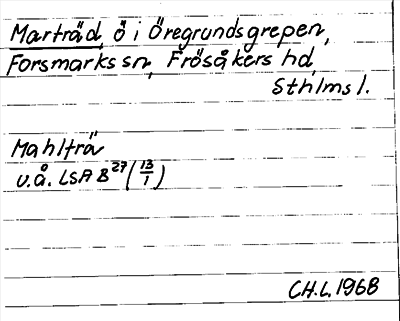 Marträd, ö i Öregrundsgrepen,
Forsmarks sn, Frösåkers hd,
Sthlms l.
Mahlträ
u.å. LSA B 27 (13/1)
CH.L. 1968